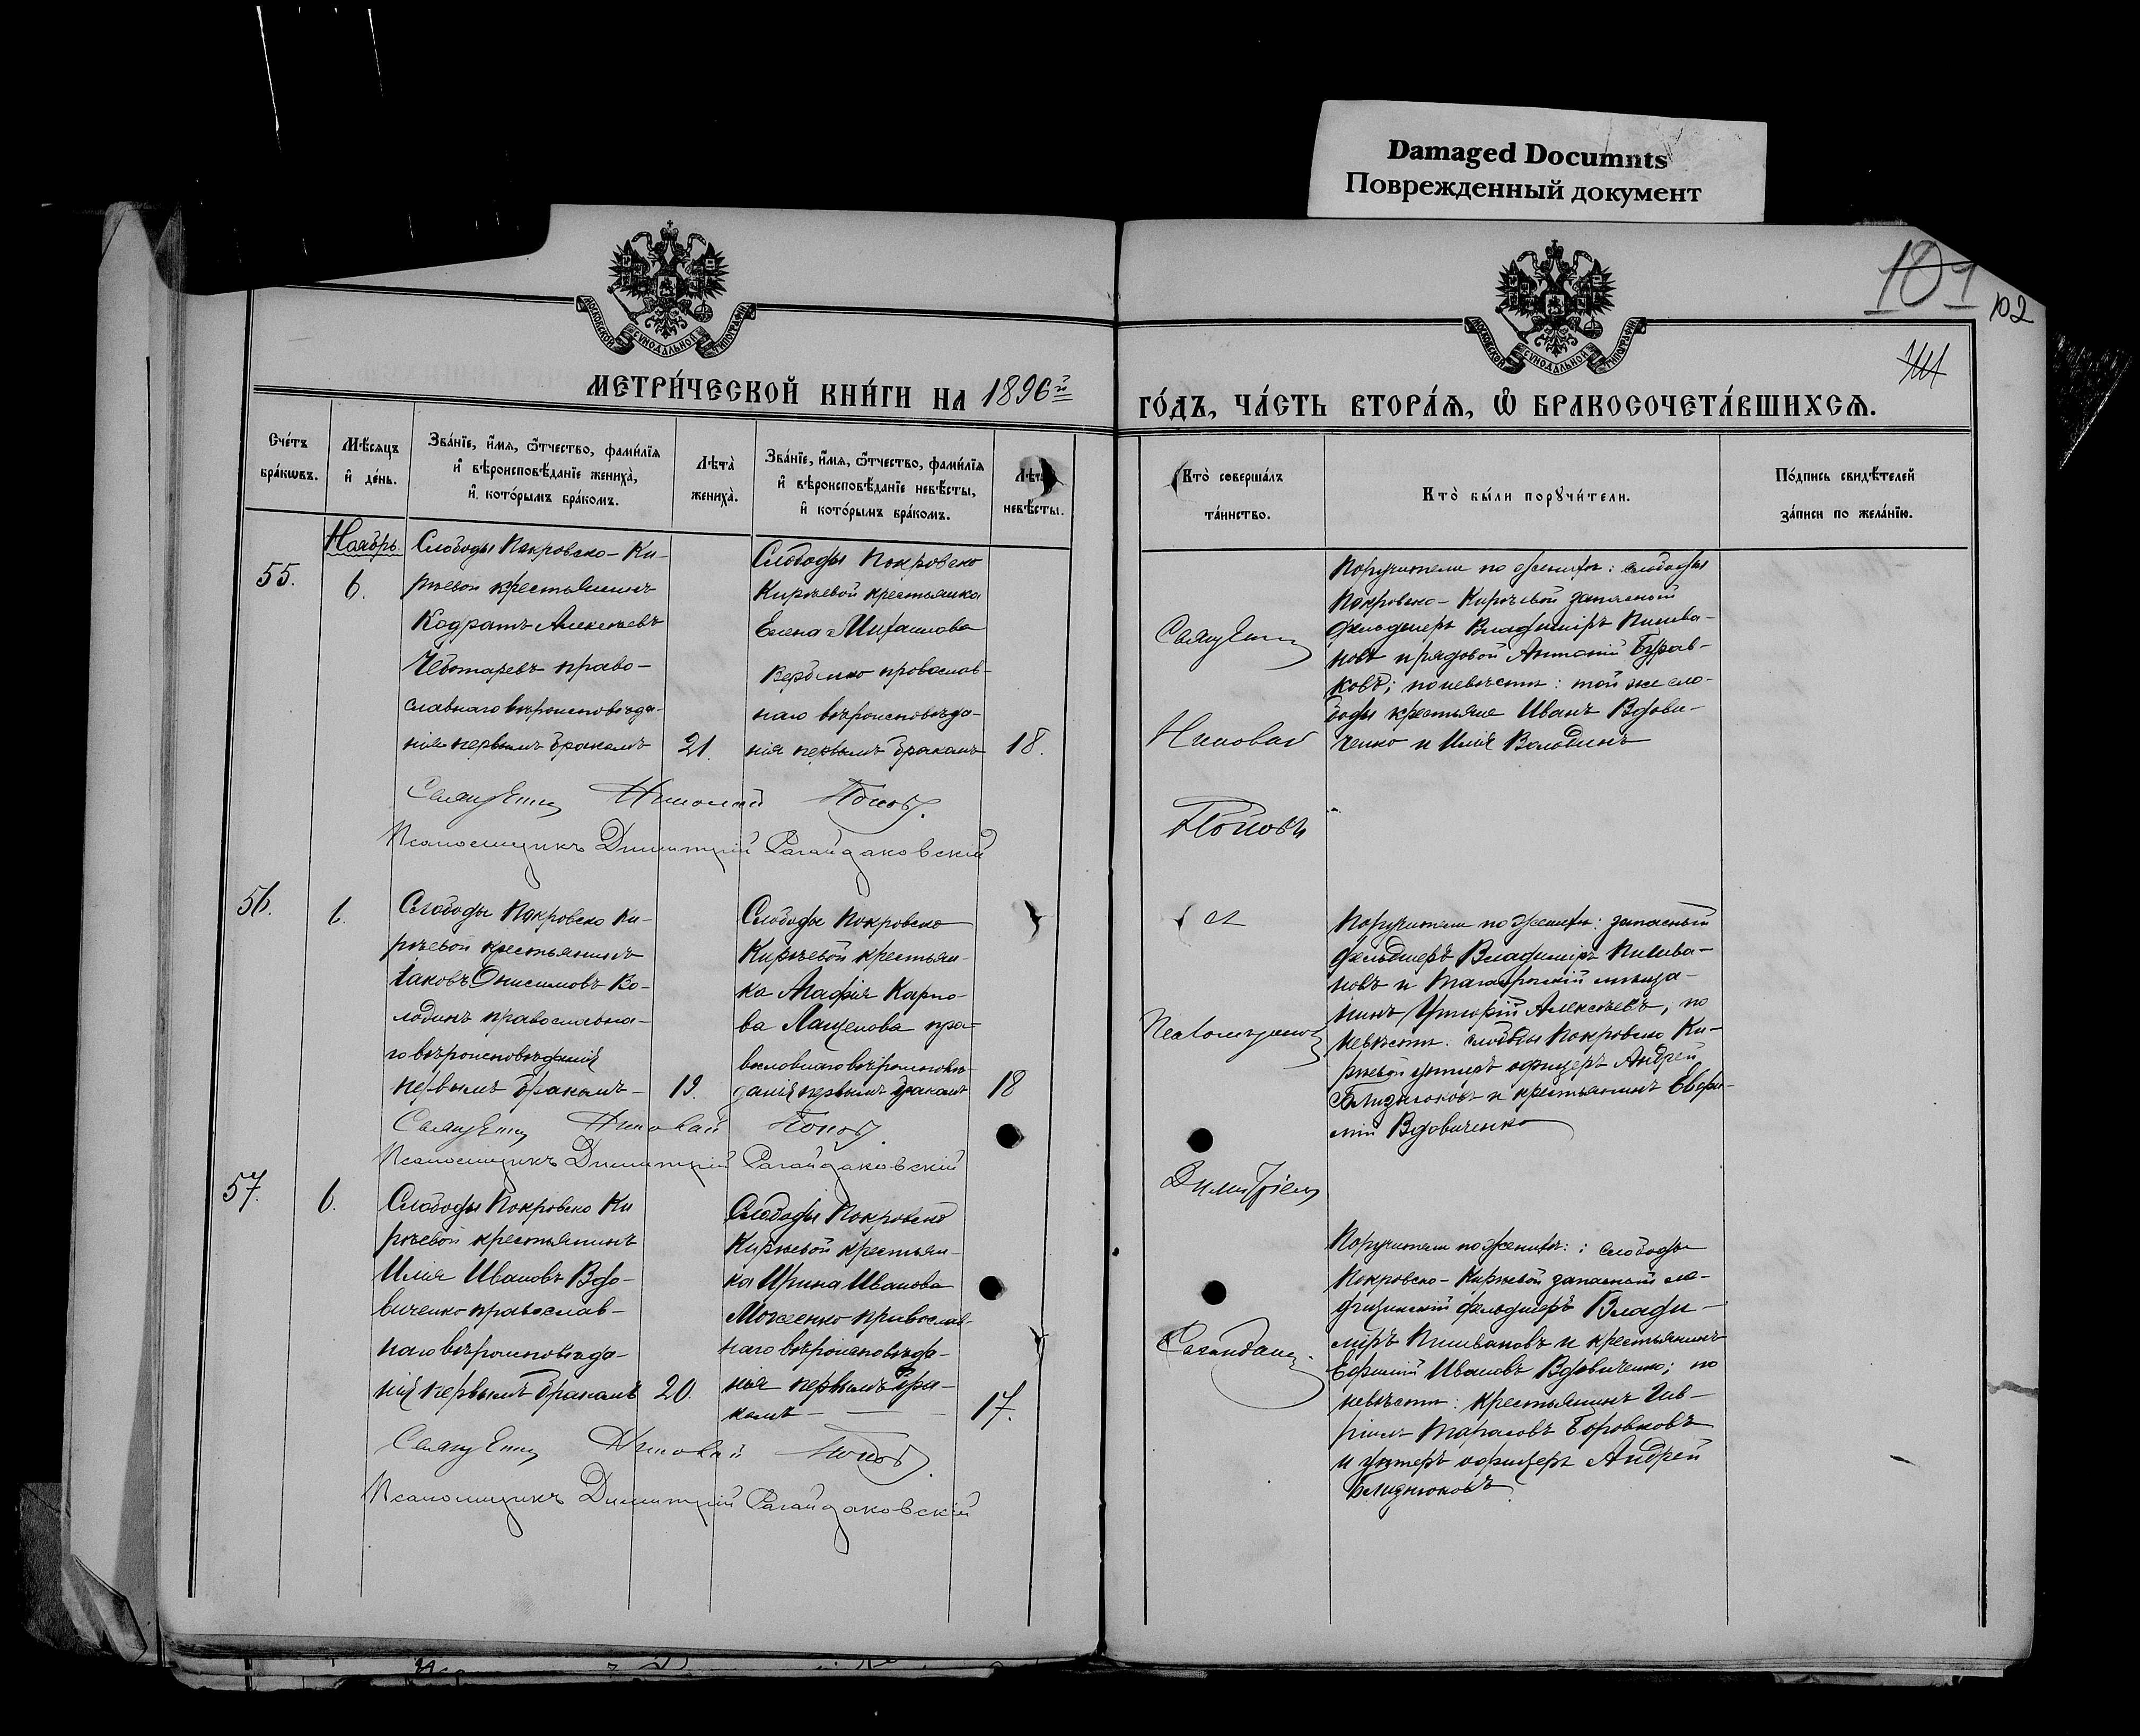 Damaged Documnts
Поврежденный документ
101
102
МОСКОВСКОЙ СѴНОДАЛЬНОЙ ТИПОГРАФІИ
МОСКОВСКОЙ СѴНОДАЛЬНОЙ ТИПОГРАФІИ
МЕТРИ́ЧЕСКОЙ КНИ́ГИ НА 1896й
ГО́ДЪ, ЧА́СТЬ ВТОРА́Ѧ, Ѽ БРАКОСОЧЕТА́ВШИХСѦ.
Сче́тъ бра́кѡвъ.
Мѣ́сѧцъ и҆ де́нь.
Зва́нїе, и҆́мѧ, ѻ҆́тчество, фами́лїѧ
и҆ вѣроисповѣ́данїе жениха̀,
и҆ кото́рымъ бра́комъ.
Лѣта̀ жениха̀.
Зва́нїе, и҆́мѧ, ѻ҆́тчество, фами́лїѧ
и҆ вѣроисповѣ́данїе невѣ́сты,
и҆ кото́рымъ бра́комъ.
Лѣта̀ невѣ́сты.
Кто̀ соверша́лъ та́инство.
Кто̀ бы́ли порꙋчи́тели.
По́дпись свидѣ́телей
за́писи по жела́нїю.
55.
Ноябрь.
6.
Слободы Покровско-Ки-
рѣевой крестьянинъ
Кодратъ Алексѣевъ
Чеботаревъ право-
славнаго вѣроисповѣда-
нія первымъ бракомъ
21.
Слободы Покровско
Кирѣевой крестьянка
Елена Михаилова
православ-
наго вѣроисповѣда-
нія первымъ бракомъ
18.
Священ
Николай
Поповъ
Поручители по женихѣ: слободы
Покровско-Кирѣевой запасный
фельдшеръ Владиміръ Пишва-
новъ и рядовой Антоній Бурав-
ковъ; по невѣстѣ: той же сло-
боды крестьяне Иванъ Вдови-
ченко и Илія Володинъ
Священ Николай Попов.
Псаломщикъ Димитрій Сагайдаковскій
56.
6.
Слободы Покровско Ки-
рѣевой крестьянинъ
Іаковъ Онисимовъ Во-
лодинъ православна-
го вѣроисповѣданія
первымъ бракомъ
19.
Слободы Покровско
Кирѣевой крестьян-
ка Агафія Карпо-
ва Лащенова пра-
вославнаго вѣроисповѣ-
данія первымъ бракомъ
18
с
Псаломщиком
Димитріем
Поручители по женихѣ: запасный
фельдшеръ Владиміръ Пишва-
новъ и Таганрогскій мѣща-
нинъ Григорій Алексѣевъ; по
невѣстѣ: слободы Покровско Ки-
рѣевой унтеръ офицеръ Андрей
Близнюковъ и крестьянинъ Евфи-
мій Вдовиченко
Священ Николай Попов.
Псаломщикъ Димитрій Сагайдаковскій
57.
6.
Слободы Покровско Ки
рѣевой крестьянинъ
Илія Ивановъ Вдо-
виченко православ-
наго вѣроисповѣда-
нія первымъ бракомъ
20.
Слободы Покровско
Кирѣевой крестьян-
ка Ирина Иванова
православ-
наго вѣроисповѣда-
нія первымъ бра-
комъ
17.
Поручители по женихѣ: слободы
Покровско-Кирѣевой запасный ме-
дицинскій фельдшеръ Влади-
міръ Пишвановъ и крестьянинъ
Ефимій Ивановъ Вдовиченко; по
невѣстѣ: крестьянинъ Гав-
ріилъ Тарасовъ Боровковъ
и унтеръ офицеръ Андрей
Близнюковъ
Священ Николай Попов.
Псаломщикъ Димитрій Сагайдаковскій